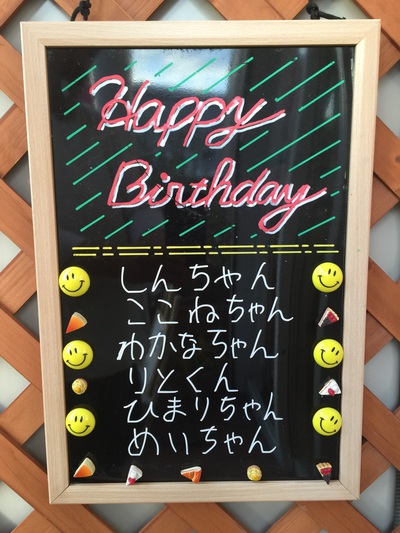 Happy
Birthday
しんちゃん
ここねちゃん
わかなちゃん
りとくん
ひまりちゃん
めいちゃん